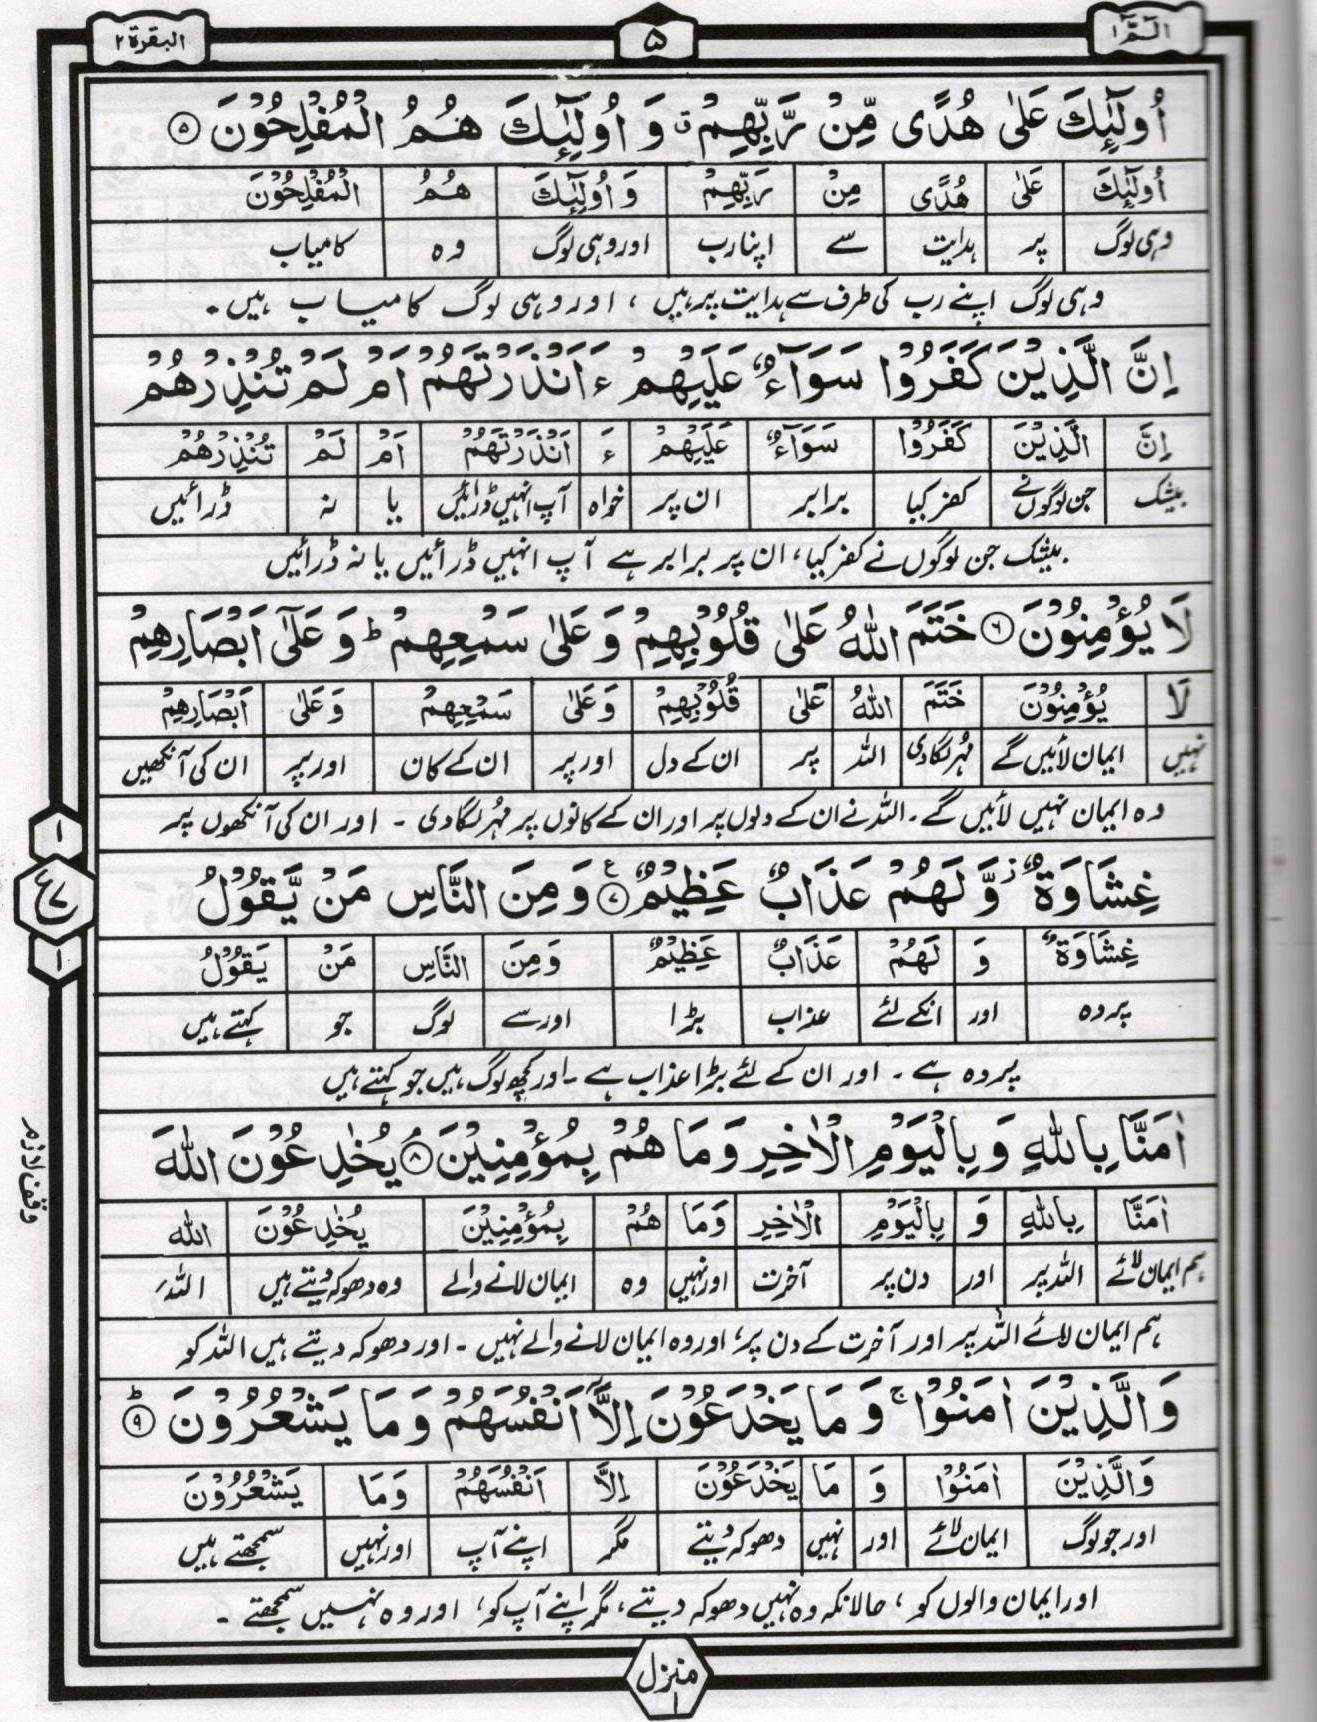 الٓمّٓ ۱
۵
البقرة ۲
اُولٰٓئِكَ عَلٰى هُدًى مِّنْ رَّبِّهِمْ ۙ وَ اُولٰٓئِكَ هُمُ الْمُفْلِحُوْنَ ۝۵
اُولٰٓئِكَ عَلٰى هُدًى مِنْ رَبِّهِمْ وَ اُولٰٓئِكَ هُمُ الْمُفْلِحُوْنَ
وہی لوگ پر ہدایت سے اپنا رب اور وہی لوگ وہ کامیاب
وہی لوگ اپنے رب کی طرف سے ہدایت پر ہیں ، اور وہی لوگ کامیاب ہیں۔
اِنَّ الَّذِيْنَ كَفَرُوْا سَوَآءٌ عَلَيْهِمْ ءَاَنْذَرْتَهُمْ اَمْ لَمْ تُنْذِرْهُمْ
اِنَّ الَّذِيْنَ كَفَرُوْا سَوَآءٌ عَلَيْهِمْ ءَ اَنْذَرْتَهُمْ اَمْ لَمْ تُنْذِرْهُمْ
بیشک جن لوگوں نے کفر کیا برابر ان پر خواہ آپ انہیں ڈرائیں یا نہ ڈرائیں
بیشک جن لوگوں نے کفر کیا، ان پر برابر ہے آپ انہیں ڈرائیں یا نہ ڈرائیں
لَا يُؤْمِنُوْنَ ۝۶ خَتَمَ اللّٰهُ عَلٰى قُلُوْبِهِمْ وَ عَلٰى سَمْعِهِمْ ؕ وَ عَلٰٓى اَبْصَارِهِمْ
لَا يُؤْمِنُوْنَ خَتَمَ اللّٰهُ عَلٰى قُلُوْبِهِمْ وَعَلٰى سَمْعِهِمْ وَعَلٰى اَبْصَارِهِمْ
نہیں ایمان لائیں گے مہر لگادی اللہ پر ان کے دل اور پر ان کے کان اور پر ان کی آنکھیں
وہ ایمان نہیں لائیں گے۔ اللہ نے ان کے دلوں پر اور ان کے کانوں پر مہر لگادی ۔ اور ان کی آنکھوں پر
۱
ع ۷
۱
غِشَاوَةٌ ؗ وَّ لَهُمْ عَذَابٌ عَظِيْمٌ ۝۷ ع وَ مِنَ النَّاسِ مَنْ يَّقُوْلُ
غِشَاوَةٌ وَ لَهُمْ عَذَابٌ عَظِيْمٌ وَمِنَ النَّاسِ مَنْ يَقُوْلُ
پردہ اور انکے لئے عذاب بڑا اور سے لوگ جو کہتے ہیں
پردہ ہے ۔ اور ان کے لئے بڑا عذاب ہے ۔ اور کچھ لوگ ہیں جو کہتے ہیں
اٰمَنَّا بِاللّٰهِ وَ بِالْيَوْمِ الْاٰخِرِ وَ مَا هُمْ بِمُؤْمِنِيْنَ ۝۸ۘ يُخٰدِعُوْنَ اللّٰهَ
وقف لازم
اٰمَنَّا بِاللّٰهِ وَ بِالْيَوْمِ الْاٰخِرِ وَمَا هُمْ بِمُؤْمِنِيْنَ يُخٰدِعُوْنَ اللّٰه
ہم ایمان لائے اللہ پر اور دن پر آخرت اور نہیں وہ ایمان لانے والے وہ دھوکہ دیتے ہیں اللہ
ہم ایمان لائے اللہ پر اور آخرت کے دن پر، اور وہ ایمان لانے والے نہیں ۔ اور دھوکہ دیتے ہیں اللہ کو
وَ الَّذِيْنَ اٰمَنُوْا ۚ وَ مَا يَخْدَعُوْنَ اِلَّاۤ اَنْفُسَهُمْ وَ مَا يَشْعُرُوْنَ ۝۹ؕ
وَالَّذِيْنَ اٰمَنُوْا وَ مَا يَخْدَعُوْنَ اِلَّا اَنْفُسَهُمْ وَمَا يَشْعُرُوْنَ
اور جو لوگ ایمان لائے اور نہیں دھوکہ دیتے مگر اپنے آپ اور نہیں سمجھتے ہیں
اور ایمان والوں کو ، حالانکہ وہ نہیں دھوکہ دیتے ، مگر اپنے آپ کو، اور وہ نہیں سمجھتے ۔
منزل ۱